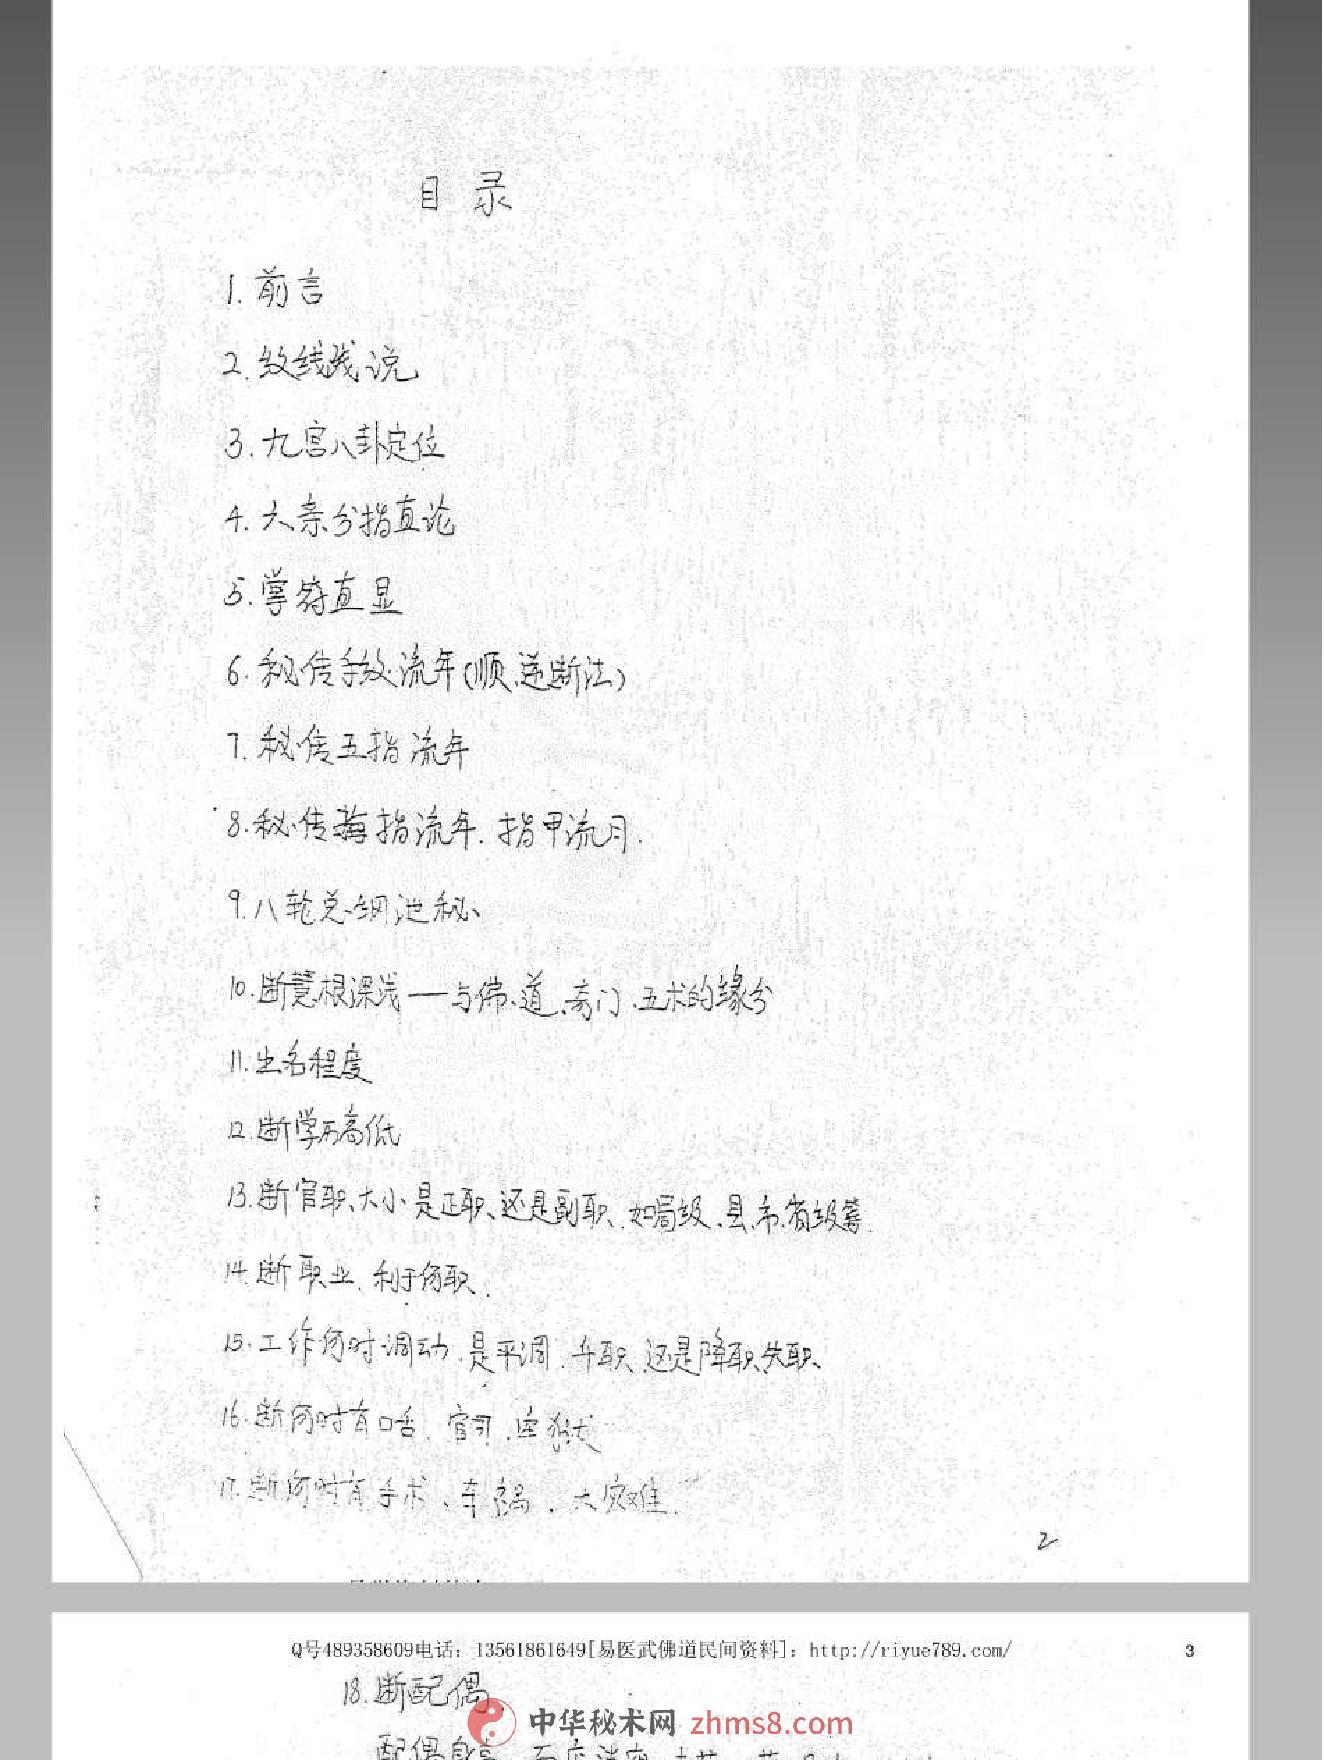 目 录
1. 前言
2. 纹线浅说
3. 九宫八卦定位
4. 六亲分指直论
5. 掌符直显
6. 秘传手纹流年(顺、逆断法)
7. 秘传五指流年
8. 秘传拇指流年. 指甲流月.
9. 八轮总纲池秘、
10. 断慧根深浅——与佛、道、奇门、五术的缘分
11. 出名程度
12. 断学历高低
13. 断官职、大小是正职、还是副职、如局级、县、市、省级等.
14. 断职业、利于何职.
15. 工作何时调动、是平调、升职、还是降职、失职、
16. 断何时有口舌、官司、牢狱
17. 断何时有手术、车祸、大灾难.
2
Q号489358609电话：13561861649[易医武佛道民间资料]：http://riyue789.com/
3
18. 断配偶、
中华秘术网 zhms8.com
配偶